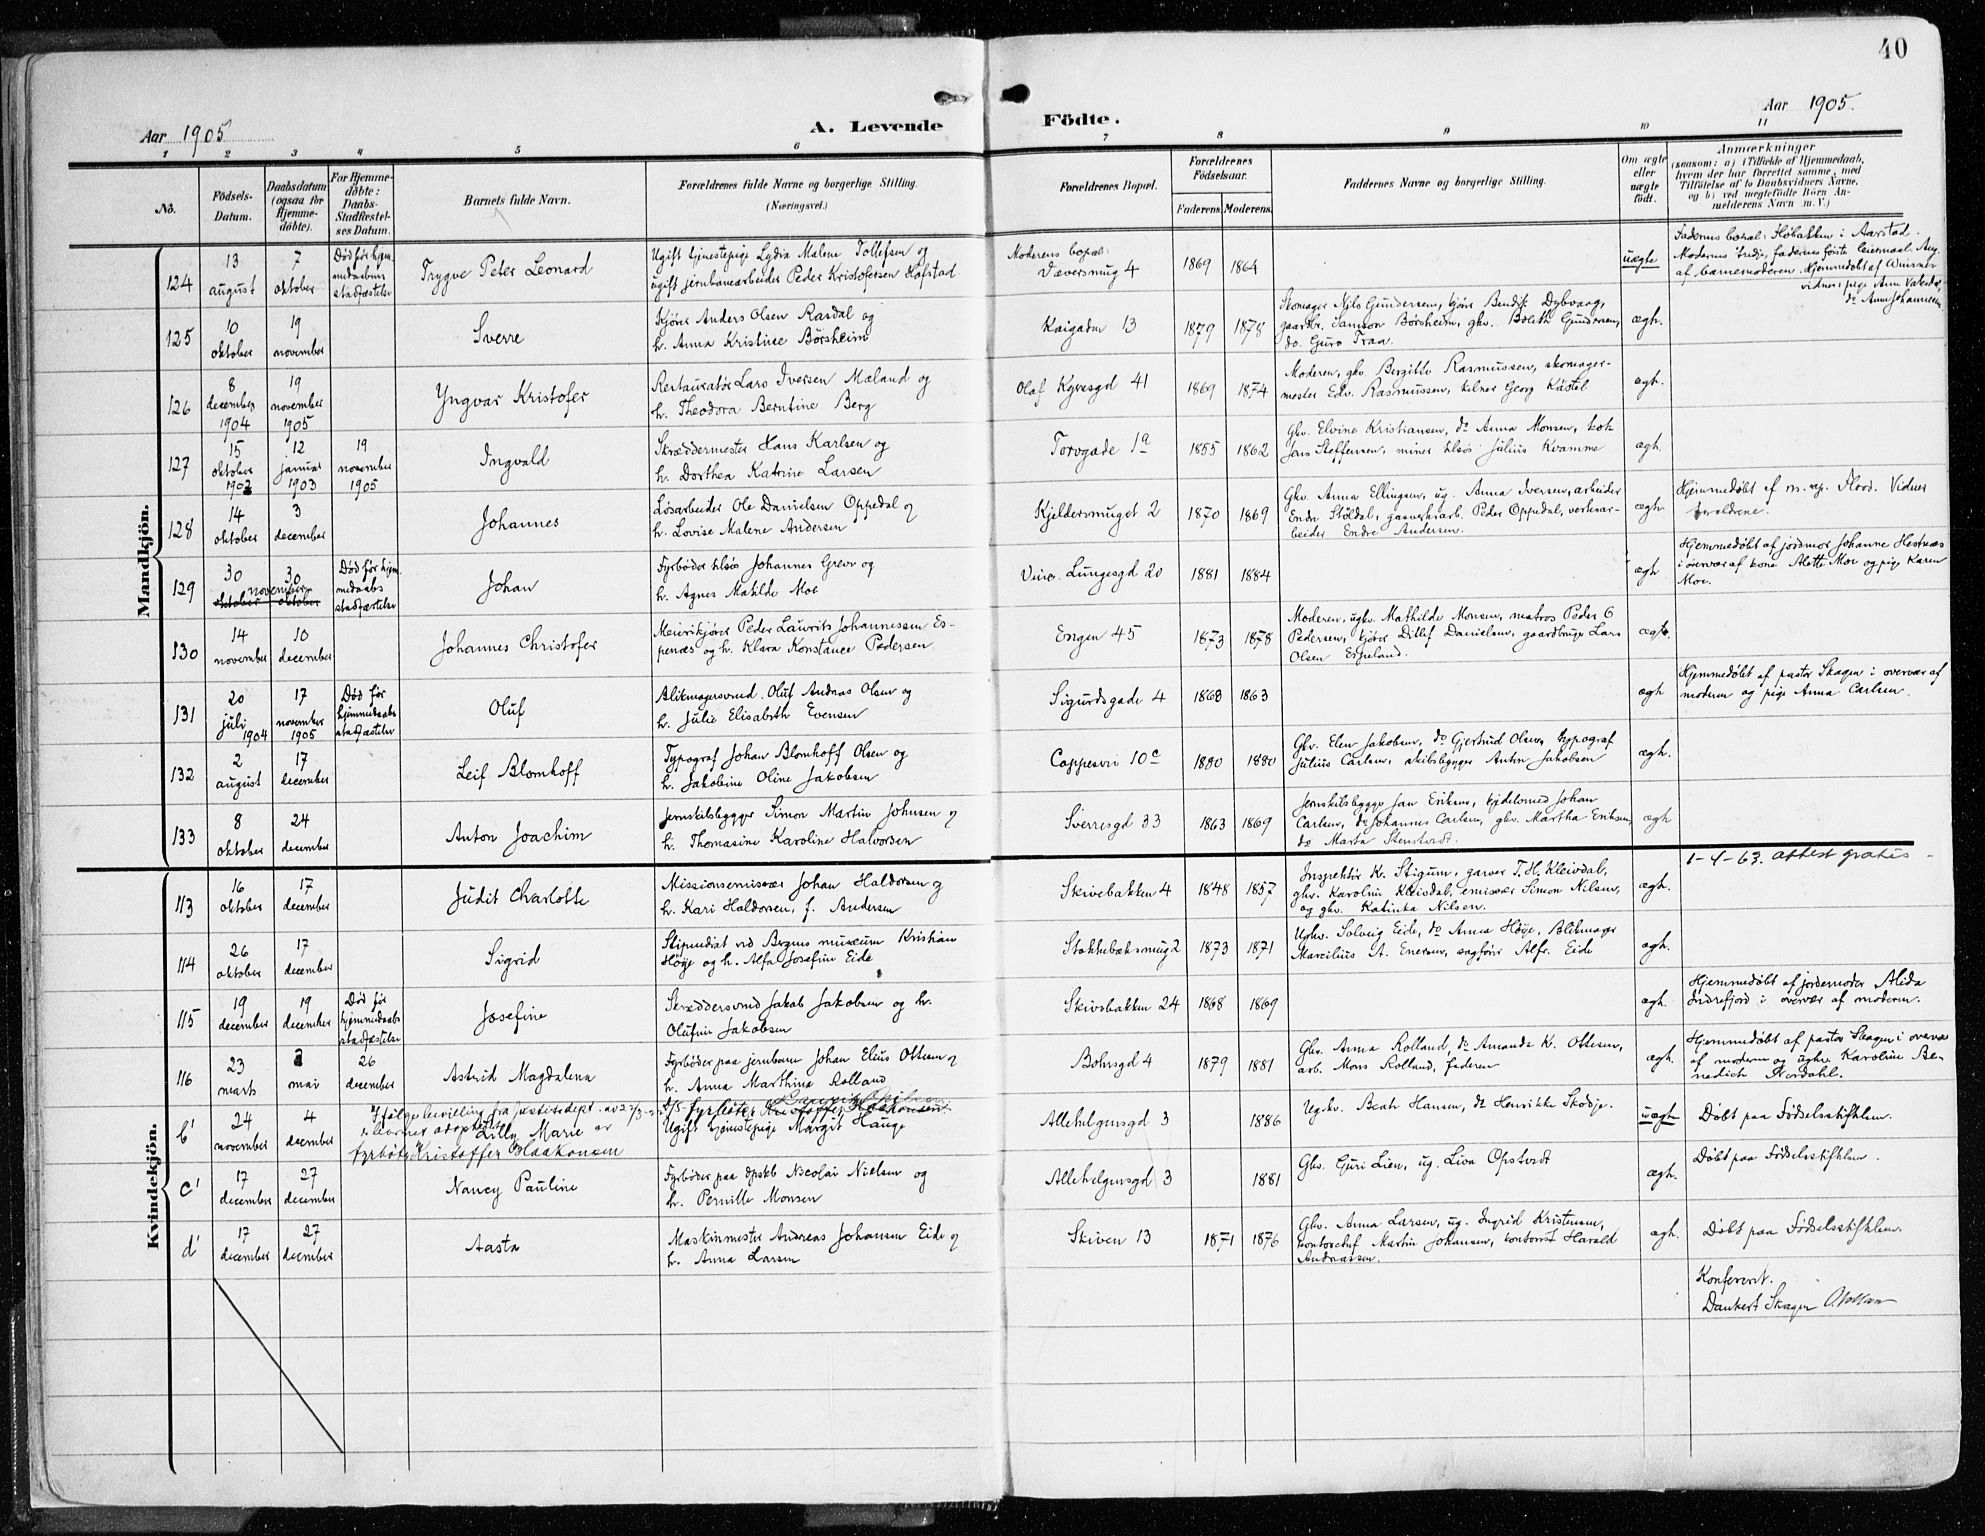 40
Aar 1905
A. Levende Födte.
Aar 1905.
1 2 3 4 5 6 7 8 9 10 11
No.
Födsels-Datum.
Daabsdatum (ogsaa for Hjemme-döbte).
For Hjemme-döbte: Daabs-Stadfæstel-ses Datum.
Barnets fulde Navn.
Forældrenes fulde Navne og borgerlige Stilling.
(Næringsvei.)
Forældrenes Bopæl.
Forældrenes Födselsaar.
Faderens. Moderens.
Faddernes Navne og borgerlige Stilling.
Om ægte eller uægte født.
Anmærkninger
(saasom: a) i Tilfælde af Hjemmedaab,
hvem der har forrettet samme, med
Tilföielse af to Daabsvidners Navne,
og b) ved uægtefödte Börn An-
melderens Navn m. V.)
Mandkjön.
124 13 august 7 oktober Død før hjem-medaabens stadfæstelse Trygve Peter Leonard
Ugift tjenestepige Lydia Malene Tollefsen og
ugift jernbanearbeider Peder Kristofersen Hofstad
Moderens bopæl: Væversmug 4 1869 1864 uægte
Faderens bopæl: Høbakken i Aarstad.
Moderens tredje, faderens første leiermaal. Ang.
af barnemoderen. Hjemmedøbt af
vidner: pige Anna
do Anna Johannesen
125 10 oktober 19 november Sverre
Kjører Anders Olsen Rasdal og
h. Anna Kristine Børsheim
Kaigaden 13 1879 1878
Skomager Nils Gundersen, kjører Bendik Dybvaag,
gaardbr. Samson Børsheim, ghv. Bolith Gundersen,
do. Guro Traa. ægt.
126 8 december 1904 19 november 1905 Yngvar Kristofer
Restauratør Lars Iversen Mæland og
h. Theodora Berntine Berg
Olaf Kyrresgd 41 1869 1874
Moderen, ghv. Bergitte Rasmussen, skomager-
mester Edv. Rasmussen, kelner Georg Kästel ægt.
127 15 oktober 1902 12 januar 1903 19 november 1905 Ingvald
Skræddermester Hans Karlsen og
h. Dorthea Katrine Larsen
Torvgade 1a 1855 1862
Ghv. Elvine Kristiansen, do Anna Monsen, kok
Jens Steffensen, miner tilsøs Julius Kvamme ægt.
128 14 oktober 3 december Johannes
Løsarbeider Ole Danielsen Oppedal og
h. Lovise Malene Andersen
Kjeldersmuget 2 1870 1869
Ghv. Anna Ellingsen, ug. Anna Iversen, arbeider
Endre Stóldal, gasverksarb. Peder Oppedal, verksar-
beider Endre Andersen. ægt
Hjemmedøbt af m. vp. Flood. Vidner
forældrene.
129 30 30 november oktober oktober Død før hjem-medaabs stadfæstelse Johan
Fyrbøder tilsøs Johannes Greve og
h. Agnes Matilde Moe
Vine. Lungesgd 20 1881 1884 ægt
Hjemmedøbt af jordmor Johanne Hestnæs
i overvær af kone Alette Moe og pige Karen
Moe.
130 14 november 10 december Johannes Christofer
Meierikjører Peder Laurits Johannessen Es-
penæs og h. Klara Konstance Pedersen
Engen 45 1873 1878
Moderen, ughv. Mathilde Monsen, matros Peder G
Pedersen, kjører Ditlef Danielsen, gaardbruger Lars
Olsen Espeland. ægt.
131 20 juli 1904 17 november 1905 Død før hjemmedaabs stadfæstelse Oluf
Blikmagersvend Oluf Andreas Olsen og
h. Julie Elisabeth Evensen
Sigurdsgade 4 1863 1863 ægt
Hjemmedøbt af pastor Skagen i overvær af
moderen og pige Anna Carlsen.
132 2 august 17 december Leif Blomhoff
Typograf Johan Blomhoff Olsen og
h. Jakobine Oline Jakobsen
Cappesvei 10c 1880 1880
Ghv. Elen Jakobsen, do Gjertrud Olsen, typograf
Julius Carlsen, skibsbygger Anton Jakobsen ægt.
133 8 oktober 24 december Anton Joachim
Jernskibsbygger Simon Martin Johnsen og
h. Thomasine Karoline Halvorsen
Sverresgd 33 1863 1869
Jernskibsbygger Jan Eriksen, kjedelsmed Johan
Carlsen, do Johannes Carlsen, ghv. Martha Eriksen,
do Marta Stenstvedt. ægt
Kvindekjön.
113 16 oktober 17 december Judit Charlotte
Missionsemissær Johan Haldorsen og
h. Kari Haldorsen, f. Andersen
Skivebakken 4 1848 1857
Inspektør K. Stigum, garver T. H. Kleivdal,
ghv. Karoline Kleivdal, emissær Simon Nilsen,
og ghv. Katinka Nilsen. ægt.
1-4-63. attest gratis
114 26 oktober 17 december Sigrid
Stipendiat ved Bergens museum Kristian
Høye og h. Alfa Josefine Eide
Stokkebæksmug 2 1873 1871
Ughv. Solveig Eide, do Anna Höye, Blikmager
Marcelius A. Enersen, sagfører Alfr. Eide ægt.
115 19 december 19 december Død før hjemmedaabs stadfæstelse Josefine
Skræddersvend Jakob Jakobsen og h.
Olufine Jakobsen
Skivebakken 24 1868 1869 ægt.
Hjemmedøbt af jordemoder Alida
Indrefjord i overvær af moderen.
116 23 marts 2 mai 26 december Astrid Magdalena
Fyrbøder paa jernbanen Johan Elius Ottesen og
h. Anna Marthina Rolland
Bohrsgd 4 1879 1881
Ghv. Anna Rolland, do Amanda K. Ottesen,
arb. Mons Rolland, faderen ægt.
Hjemmedøbt af pastor Skagen i overvær
af moderen og ughv. Karoline Be-
nedich Nordahl.
b' 24 november 4 december
Ifølge bevilling fra Justisdept. av
er barnet adoptert av
Lilly Marie
fyrbøter Kristoffer Haakonsen
d/s fyrbøter Kristoffer Haakonsen
Ugift tjenestepige Margit Hauge
Allehelgensgd 3 1886
Ughv. Beate Hansen, do Henrikke Skodje. uægt
Døbt paa Fødselsstiftelsen.
c' 17 december 27 december Nancy Pauline
Fyrbøder paa dpskb Nicolai Nielsen og
h. Pernille Monsen
Allehelgensgd 3 1881
Ghv. Guri Lien, ug. Liva Opstvedt ægt.
Døbt paa Fødselsstiftelsen.
d' 17 december 27 december Aasta
Maskinmester Andreas Johansen Eide og
h. Anna Larsen
Skiven 13 1871 1876
Ghv. Anna Larsen, ug. Ingrid Kristensen,
kontorchef Martin Johansen, kontorist Harald
Andreassen. ægt.
Døbt paa Fødselsstiftelsen.
Konfereret.
Dankert Skagen